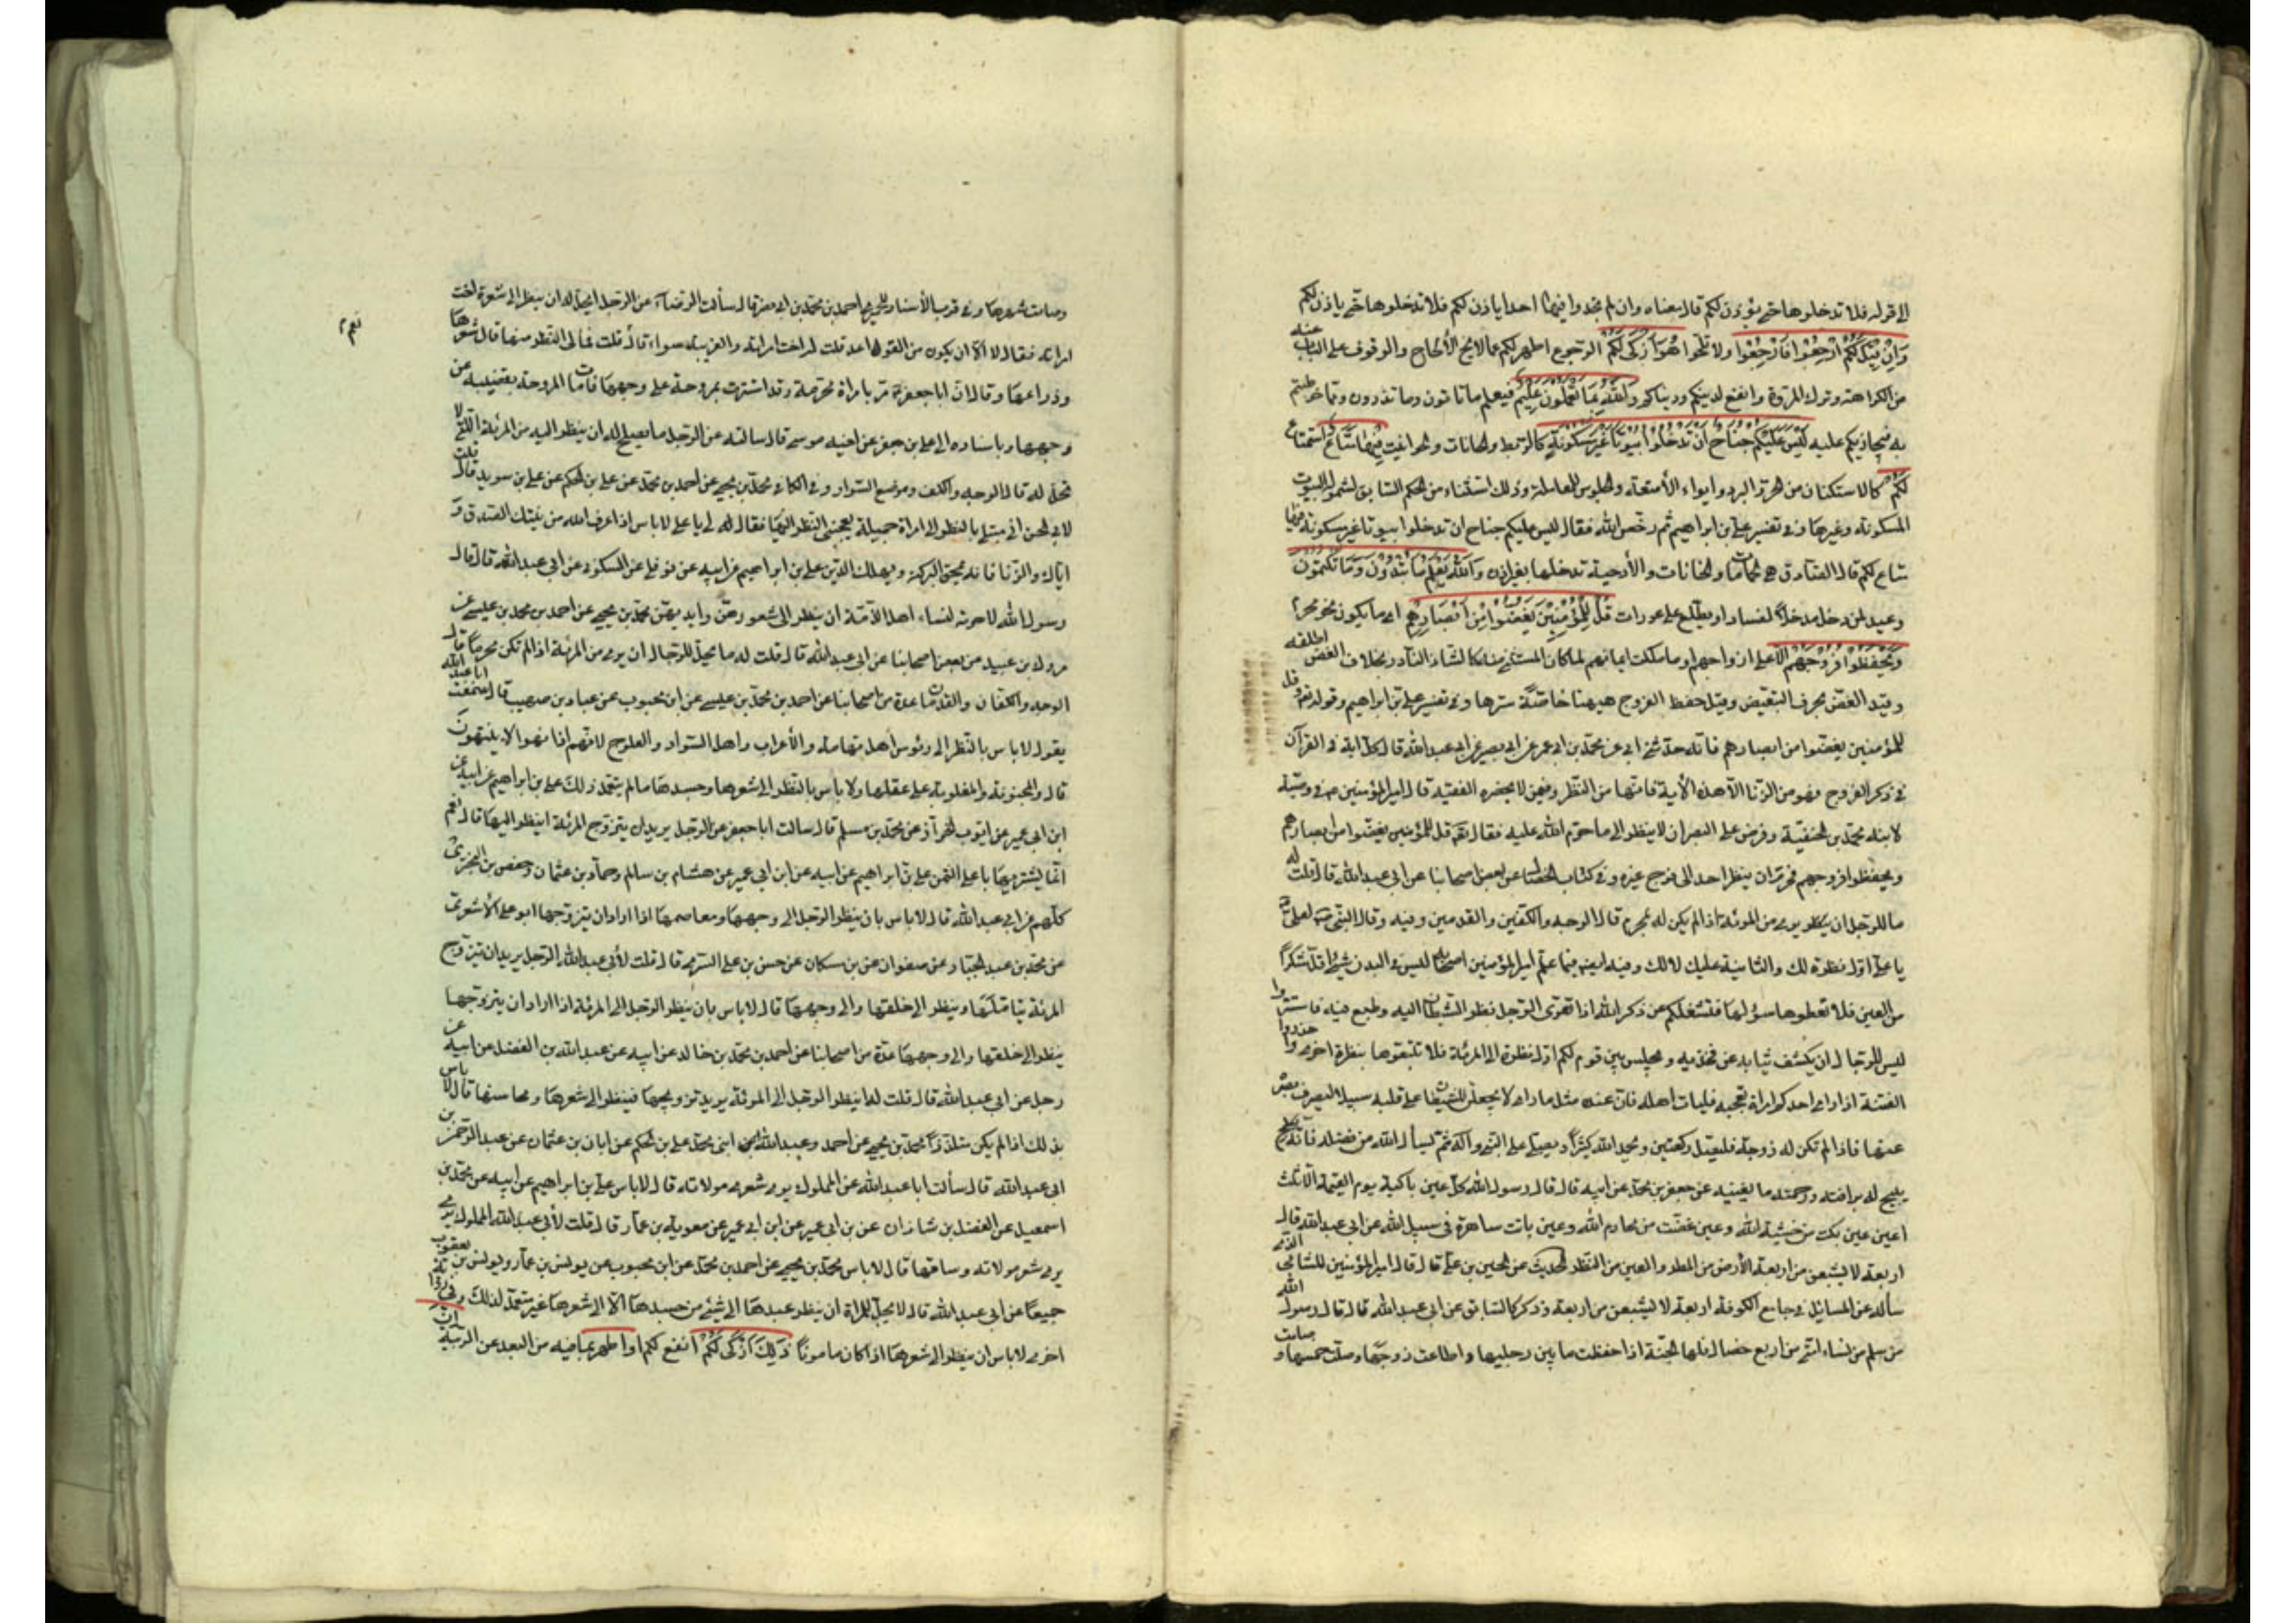 الى قوله فلا تدخلوها حتى يؤذن لكم قال معناه وان لم تجدوا فيها احدا ياذن لكم فلا تدخلوها حتى ياذن لكم
وَاِنْ قِيلَ لَكُمُ ارْجِعُوا فَارْجِعُوا ولا تلحّوا هُوَ اَزْكَى لَكُمْ الرجوع اطهر لكم عما لا يخ الألحاح والوقوف على الباب عنه
من الكراهة وترك المروة وانفع لدينكم ودنياكم وَاللّٰهُ بِمَا تَعْمَلُونَ عَلِيمٌ فيعلم ما تاتون وما تذرون وما خوطبتم
به فيجازيكم عليه لَيْسَ عَلَيْكُمْ جُنَاحٌ اَنْ تَدْخُلُوا بُيُوتًا غَيْرَ مَسْكُونَةٍ كالربط والخانات والحوانيت فِيهَا مَتَاعٌ استمتاع
لَكُمْ كالاستكنان من الحر والبرد وايواء الأمتعة والجلوس للمعاملة وذلك استثناء من الحكم السابق لشموله البيوت
المسكونة وغيرها وفي تفسير علي بن ابراهيم ثم رخّص الله فقال ليس عليكم جناح ان تدخلوا بيوتا غير مسكونة فيها
متاع لكم قال الصادق هي الحمامات والخانات والأرحية تدخلها بغير اذن وَاللّٰهُ يَعْلَمُ مَا تُبْدُونَ وَمَا تَكْتُمُونَ
وعيد لمن دخل مدخلاً لفساد او يطّلع على عورات قُلْ لِلْمُؤْمِنِينَ يَغُضُّوا مِنْ اَبْصَارِهِمْ اى ما يكون نحو محرم
وَيَحْفَظُوا فُرُوجَهُمْ الا على ازواجهم او ما ملكت ايمانهم لما كان المستثنى منه كالشاذ النادر بخلاف الغض اطلقه
وقيّد الغض بحرف التبعيض وقيل حفظ الفروج هيهنا خاصّة سترها وفي تفسير علي بن ابراهيم وقوله تعالى قل
للمؤمنين يغضوا من ابصارهم فانه حدثني ابي عن محمد بن ابي عمير عن ابي بصير عن ابي عبد الله قال كل اية في القرآن
في ذكر الفروج فهو من الزنا الا هذه الأية فانها من النظر وفيمن لا يحضره الفقيه قال امير المؤمنين في وصيته
لابنه محمد بن الحنفيّة وفرض على البصر ان لا ينظر الى ما حرّم الله عليه فقال قل للمؤمنين يغضوا من ابصارهم
ويحفظوا فروجهم فحرّم ان ينظر احد الى فرج غيره وفي كتاب الخصال عن بعض اصحابنا عن ابي عبد الله قال قلت له
ما للرجل ان يرى من المرئة اذا لم يكن له بمحرم قال الوجه والكفين والقدمين وفيه وقال النبي لعلي
يا علي اول نظرة لك والثانية عليك لا لك وفيه فيما علّم امير المؤمنين اصحابه ليس في البدن شئ اقل شكراً
من العين فلا تعطوها سؤلها فتشغلكم عن ذكر الله اذا تعرى الرجل نظر الشيطان اليه وطمع فيه فاستتروا
ليس للرجال ان يكشف ثيابه عن فخذيه ويجلس بين قوم لكم اول نظرة الى المرئة فلا تتبعوها بنظرة اخرى واحذروا
الفتنة اذا راى احدكم امراة تعجبه فليات اهله فان عند اهله مثل ما راى لا يجعلن للشيطان على قلبه سبيلا ليصرف بصره
عنها فاذا لم تكن له زوجة فليصل ركعتين ويحمد الله كثيراً ويصلي على النبي واله ثم ليسأل الله من فضله فانه
يبيح له برافته ورحمته ما يغنيه عن جعفر بن محمد عن ابيه قال قال رسول الله كل عين باكية يوم القيمة الا ثلث
اعين عين بكت من خشية الله وعين غضّت من محارم الله وعين باتت ساهرة في سبيل الله عن ابي عبد الله قال
اربعة لا يشبعن من اربعة الأرض من المطر والعين من النظر الحديث عن الحسين بن علي قال قال امير المؤمنين للشامي الذي
سأله عن المسائل في جامع الكوفة اربعة لا يشبعن من اربعة وذكر كالسابق عن ابي عبد الله قال قال رسول الله
من سلم من نساء امتي من اربع خصال فلها الجنة اذا حفظت ما بين رجليها واطاعت زوجها وصلت خمسها و
صامت
وصامت شهرها وفي قرب الأسناد للحميري احمد بن محمد بن ابي نصر قال سألت الرضا عن الرجل ايحل له ان ينظر الى شعر اخت
امراته فقال لا الا ان يكون من القواعد قلت له اخت امراته والغريبة سواء قال نعم قلت فما لى النظر منها قال شعرها
نعم
وذراعها وقال ان ابا جعفر مر بامراة محرمة وقد استترت بمروحة على وجهها فاماط المروحة بقضيبه عن
وجهها وباسناده الى علي بن جعفر عن اخيه موسى قال سالته عن الرجل ما يصلح له ان ينظر اليه من المرئة التي لا
تحل له قال الوجه والكف وموضع السوار وفي الكافي محمد بن يحيى عن احمد بن محمد عن علي بن الحكم عن علي بن سويد قال قلت
لابي الحسن اني مبتلى بالنظر الى امراة جميلة يعجبني النظر اليها فقال لي يا علي لا باس اذا عرف الله من نيتك الصدق و
اياك والزنا فانه يمحق البركة ويهلك الدين علي بن ابراهيم عن ابيه عن نوفلي عن السكوني عن ابي عبد الله قال قال
رسول الله لا حرمة لنساء اهل الذمّة ان ينظر الى شعورهن وايديهن محمد بن يحيى عن احمد بن محمد بن عيسى عن
مروك بن عبيد من بعض اصحابنا عن ابي عبد الله قال قلت له ما يحل للرجال ان يرى من المرئة اذا لم تكن محرماً قال
الوجه والكفان والقدمان عدة من اصحابنا عن احمد بن محمد بن عيسى عن ابن محبوب عن عباد بن صهيب قال سمعت ابا عبد الله
يقول لا باس بالنظر الى رئوس اهل تهامة والأعراب واهل السواد والعلوج لانهم اذا نهوا لا ينتهون
قال والمجنونة والمغلوبة على عقلها ولا باس بالنظر الى شعرها وجسدها ما لم يتعمد ذلك علي بن ابراهيم عن ابيه عن
ابن ابي عمير عن ايوب الخراز عن محمد بن مسلم قال سالت ابا جعفر عن الرجل يريد ان يتزوج المرئة اينظر اليها قال نعم
انما يشتريها باعلى الثمن علي بن ابراهيم عن ابيه عن ابن ابي عمير عن هشام بن سالم وحماد بن عثمان وحفص بن البختري
كلهم عن ابي عبد الله قال لا باس بان ينظر الرجل الى وجهها ومعاصمها اذا اراد ان يتزوجها ابو علي الأشعري
عن محمد بن عبد الجبار عن صفوان عن بن مسكان عن حسن بن علي السري قال قلت لأبي عبد الله الرجل يريد ان يتزوج
المرئة يتاملها وينظر الى خلفها والى وجهها قال لا باس بان ينظر الرجل الى المرئة اذا اراد ان يتزوجها
ينظر الى خلفها والى وجهها عدة من اصحابنا عن احمد بن محمد بن خالد عن ابيه عن عبد الله بن الفضل عن ابيه عن
رجل عن ابي عبد الله قال قلت له اينظر الرجل الى المرئة يريد تزويجها فينظر الى شعرها ومحاسنها قال لا باس
بذلك اذا لم يكن متلذذاً محمد بن يحيى عن احمد وعبد الله ابنى محمد علي بن الحكم عن ابان بن عثمان عن عبد الرحمن بن
ابي عبد الله قال سألت ابا عبد الله عن المملوك يرى شعر مولاته قال لا باس علي بن ابراهيم عن ابيه عن محمد بن
اسمعيل عن الفضل بن شاذان عن بن ابي عمير عن ابن ابي عمير عن معوية بن عمار قال قلت لأبي عبد الله المملوك يرى
يرى شعر مولاته وساقها قال لا باس محمد بن يحيى عن احمد بن محمد عن ابن محبوب عن يونس بن عمار ويونس بن يعقوب
جميعًا عن ابي عبد الله قال لا يحل للمراة ان ينظر عبدها الى شئ من جسدها الا الى شعرها غير متعمّد لذلك وفي رواية
اخرى لا باس ان ينظر الى شعرها اذا كان مامونًا ذَلِكَ اَزْكَى لَكُمْ انفع لكم او اطهر بما فيه من البعد عن الريبة ان